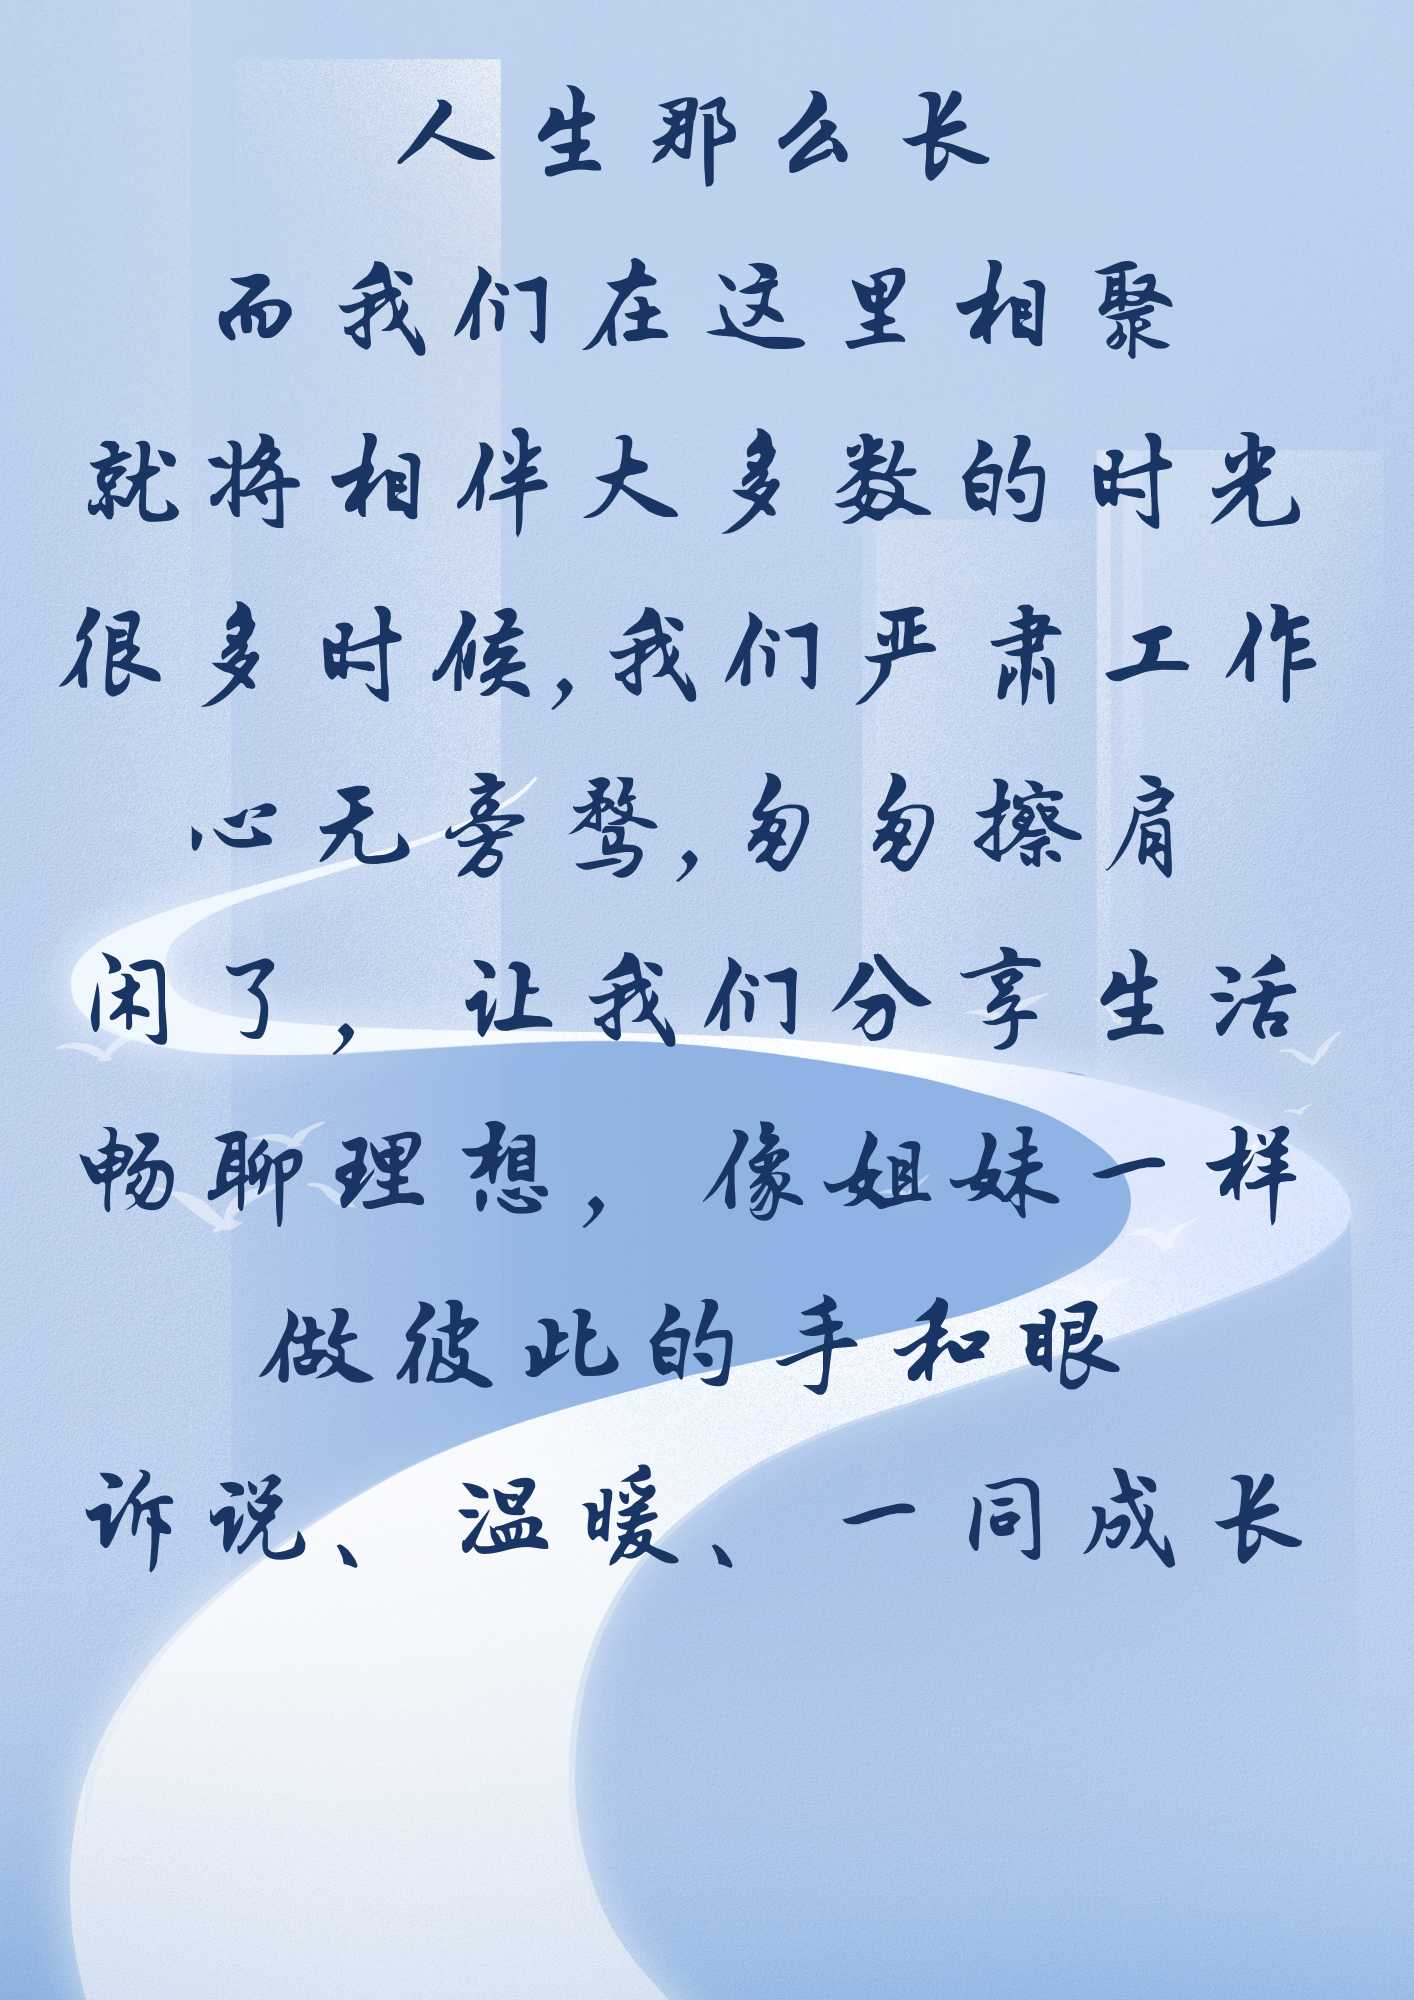 人生那么长
而我们在这里相聚
就将相伴大多数的时光
很多时候,我们严肃工作
心无旁骛,匆匆擦肩
闲了，让我们分享生活
畅聊理想，像姐妹一样
做彼此的手和眼
诉说、温暖、一同成长